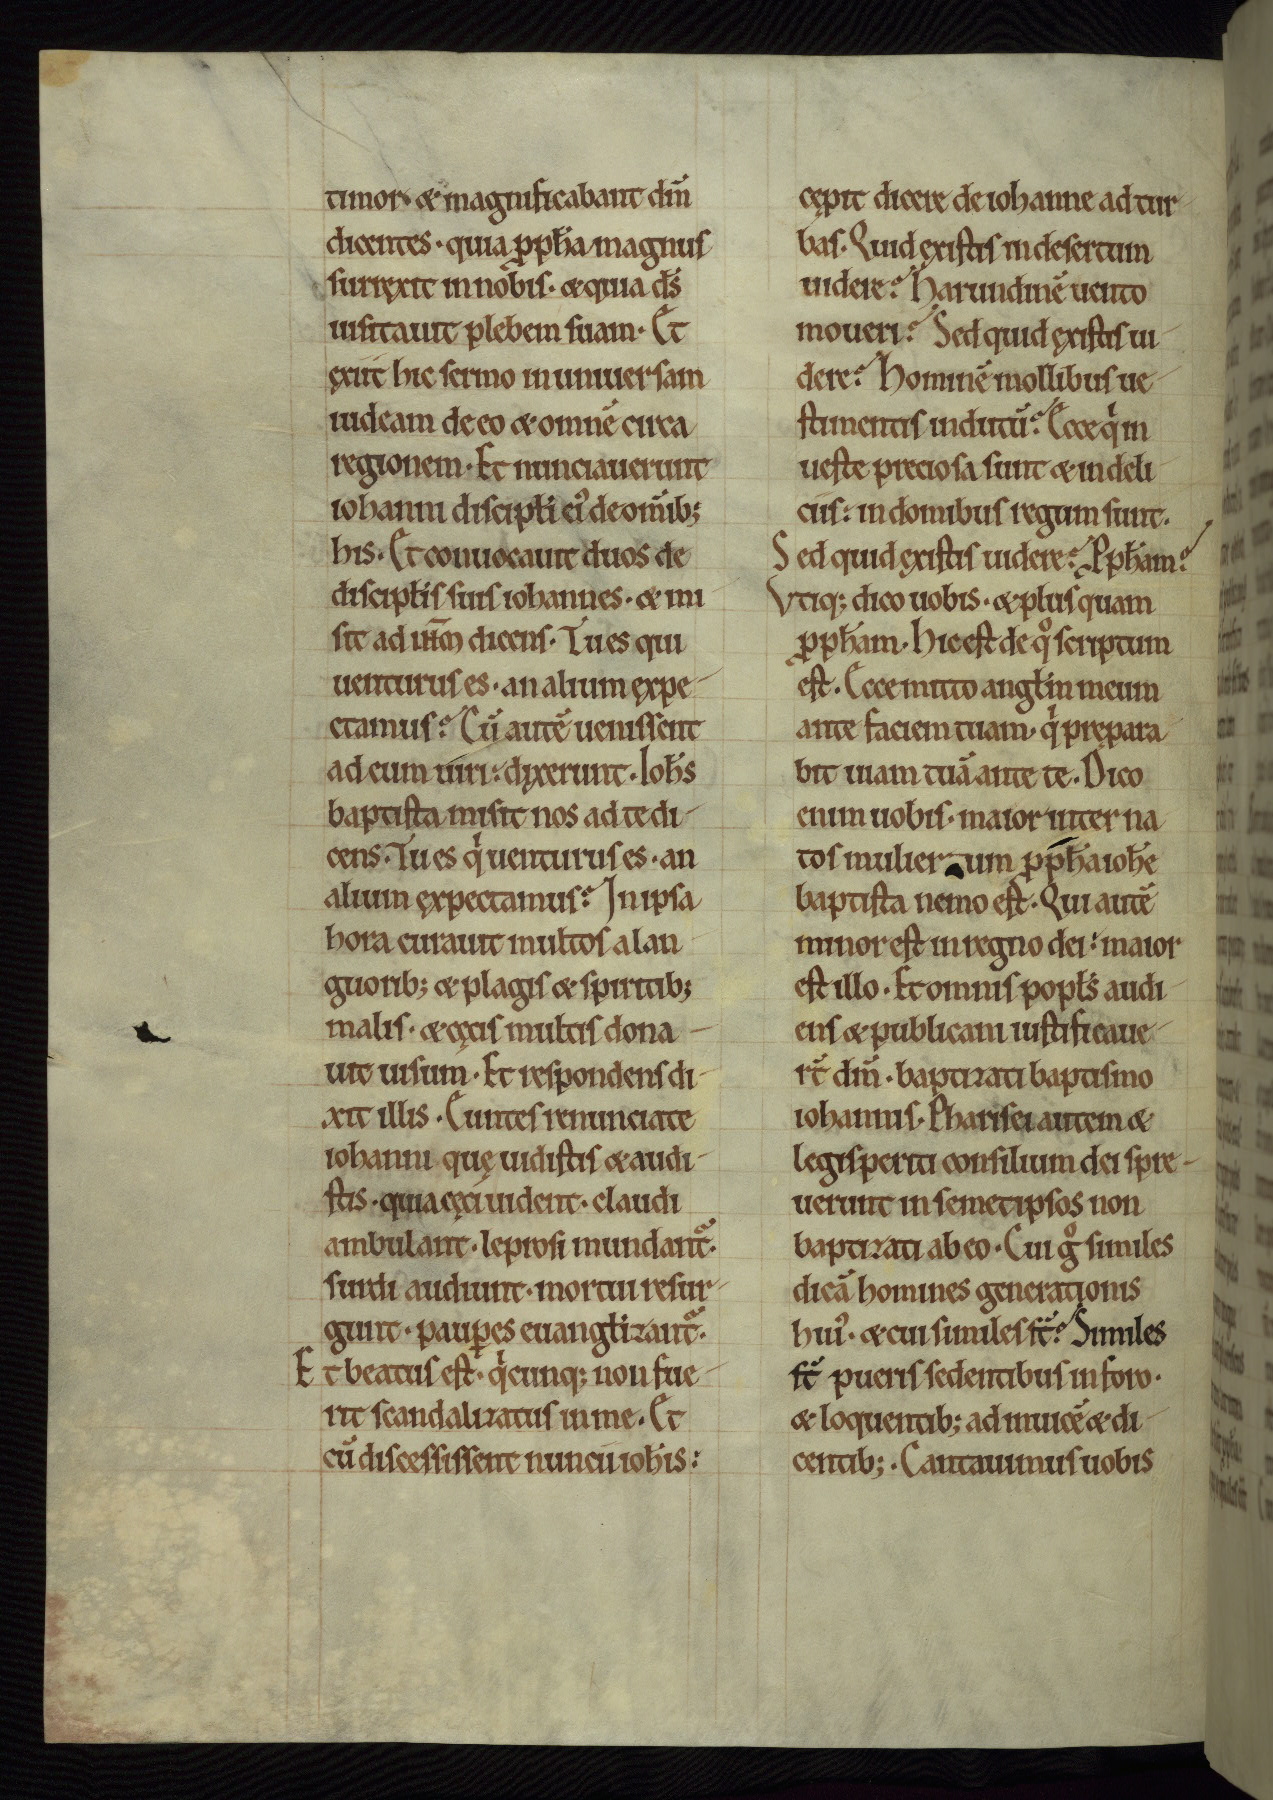 timor· & magnificabant dn̄m
dicentes· quia ꝓph̄a magnus
surrexit in nobis· & quia ds̄
uisitauit plebem suam· Et
exiit hic sermo in uniuersam
iudeam de eo & omnē circa
regionem· Et nunciauerunt
iohanni discipłi ei᾽ de om̄ib;
his· Et conuocauit duos de
discipłis suis iohannes· & mi
sit ad ih̄m dicens· Tu es qui
uenturus es· an alium expe-
ctamus? Cū autē uenissent
ad eum uiri: dixerunt· Ioh̄s
baptista misit nos ad te di-
cens· Tu es qͥ uenturus es· an
alium expectamus? In ipsa
hora curauit multos a lan-
guorib; & plagis & spiritib;
malis· & cęcis multis dona-
uit uisum· Et respondens di-
xit illis· Euntes renunciate
iohanni quę uidistis & audi-
stis· quia cęci uident· claudi
ambulant· leprosi mundant᷑·
surdi audiunt· mortui resur-
gunt· pauꝑes euangłizant᷑·
Et beatus est· qͥcunq; non fue-
rit scandalizatus in me· Et
cū discessissent nuncii ioh̄is:
cępit dicere de iohanne ad tur-
bas· Quid existis in desertum
uidere? Harundinē uento
moueri? Sed quid existis ui-
dere? Hominē mollibus ue-
stimentis indutū? Ecce qͥ in
ueste preciosa sunt & in deli-
ciis: in domibus regum sunt·
Sed quid existis uidere? Ꝓph̄am?
Vtiq; dico uobis· & plus quam
ꝓph̄am· Hic est de qͦ scriptum
est· Ecce mitto angłm meum
ante faciem tuam· qͥ prępara-
bit uiam tuā ante te· Dico
enim uobis· maior inter na
tos mulierum ꝓph̄a ioh̄e
baptista nemo est· Qui autē
minor est in regno dei: maior
est illo· Et omnis popłs audi-
ens & publicani iustificaue-
rt̄ dn̄m· baptizati baptismo
iohannis· Pharisei autem &
legisperiti consilium dei spre-
uerunt in semetipsos non
baptizati ab eo· Cui gͦ similes
dicā homines generationis
hui᾽· & cui similes st̄? Similes
st̄ pueris sedentibus in foro·
& loquentib; ad inuicē & di-
centib;· Cantauimus uobis